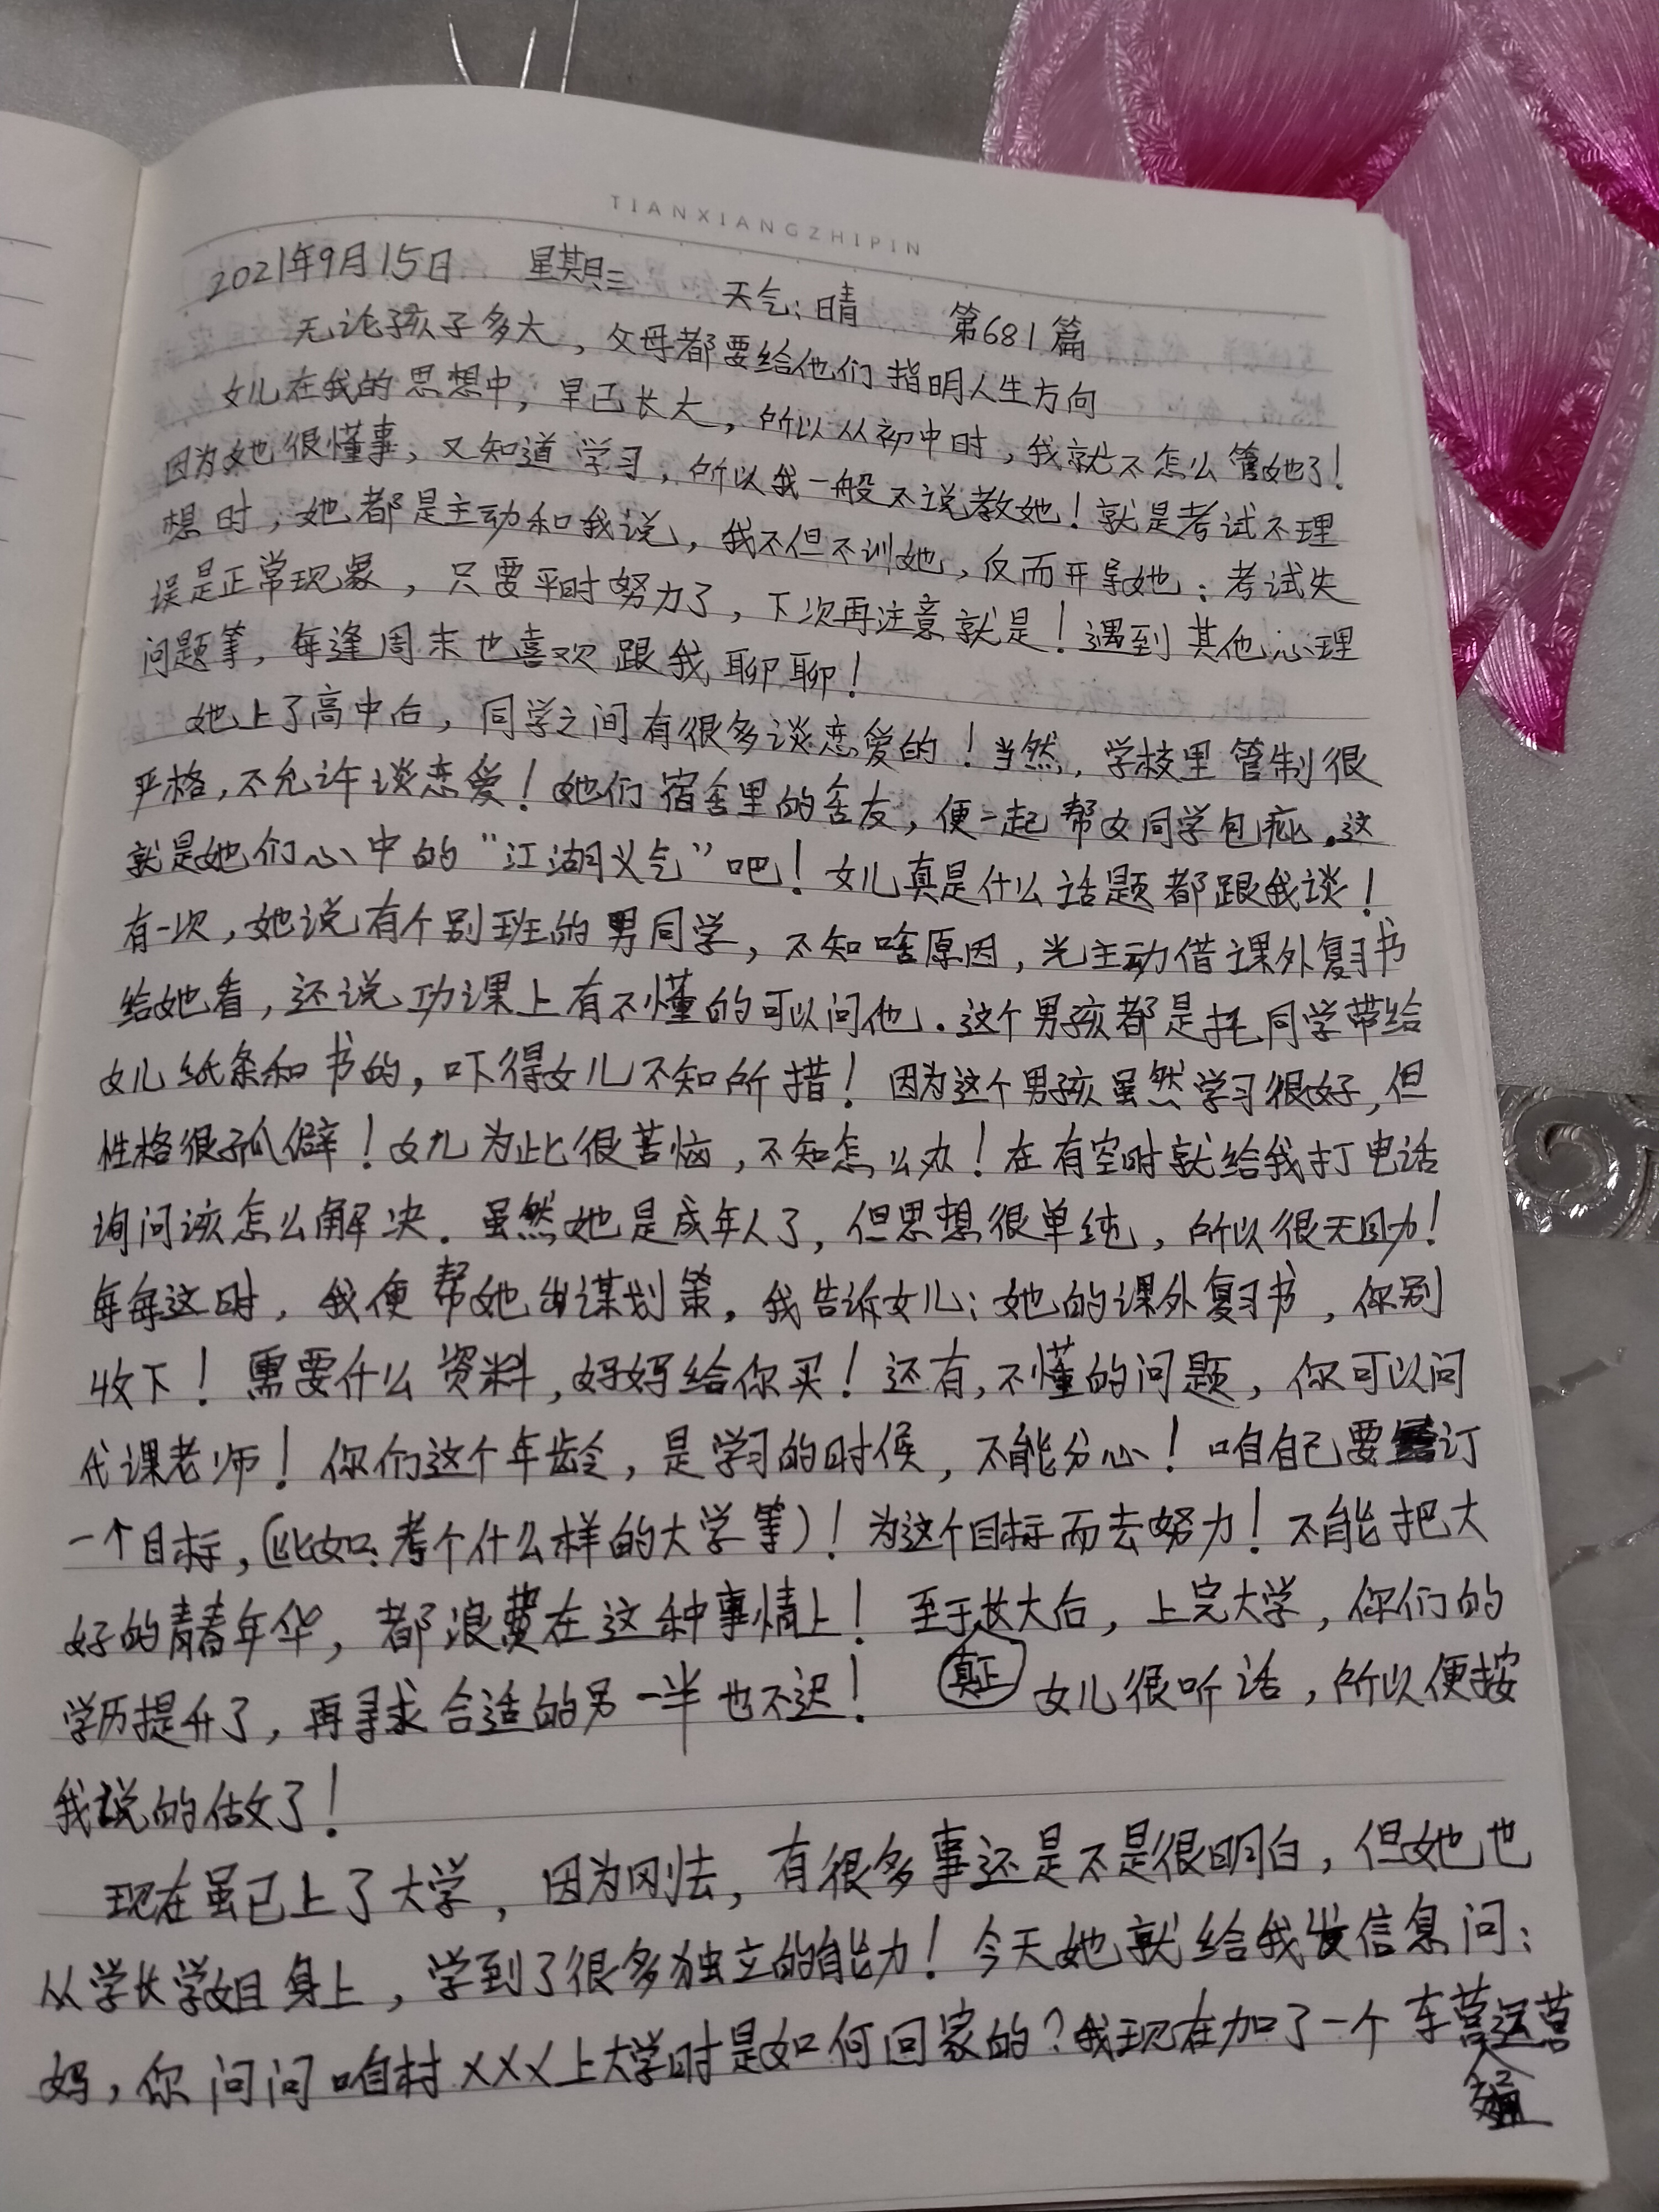 TIANXIANGZHIPIN
2021年9月15日 星期三 天气:晴 第681篇
无论孩子多大,父母都要给他们指明人生方向
女儿在我的思想中,早已长大,所以从初中时,我就不怎么管她了!
因为她很懂事,又知道学习,所以我一般不说教她!就是考试不理
想时,她都是主动和我说,我不但不训她,反而开导她:考试失
误是正常现象,只要平时努力了,下次再注意就是!遇到其他心理
问题等,每逢周末也喜欢跟我聊聊!
她上了高中后,同学之间有很多谈恋爱的!当然,学校里管制很
严格,不允许谈恋爱!她们宿舍里的舍友,便一起帮女同学包庇。这
就是她们心中的“江湖义气”吧!女儿真是什么话题都跟我谈!
有一次,她说有个别班的男同学,不知啥原因,光主动借课外复习书
给她看,还说功课上有不懂的可以问他。这个男孩都是托同学带给
女儿纸条和书的,吓得女儿不知所措!因为这个男孩虽然学习很好,但
性格很孤僻!女儿为此很苦恼,不知怎么办!在有空时就给我打电话
询问该怎么解决。虽然她是成年人了,但思想很单纯,所以很无助!
每每这时,我便帮她出谋划策。我告诉女儿:她的课外复习书,你别
收下!需要什么资料,妈妈给你买!还有,不懂的问题,你可以问
代课老师!你们这个年龄,是学习的时候,不能分心!咱自己要订
一个目标,(比如:考个什么样的大学等)!为这个目标而去努力!不能把大
好的青春年华,都浪费在这种事情上!至于长大后,上完大学,你们的
学历提升了,再寻求合适的另一半也不迟! 真正 女儿很听话,所以便按
我说的做了!
现在虽已上了大学,因为刚去,有很多事还是不是很明白,但她也
从学长学姐身上,学到了很多独立的能力!今天她就给我发信息问:
妈,你问问咱村XXX上大学时是如何回家的?我现在加了一个车营运营